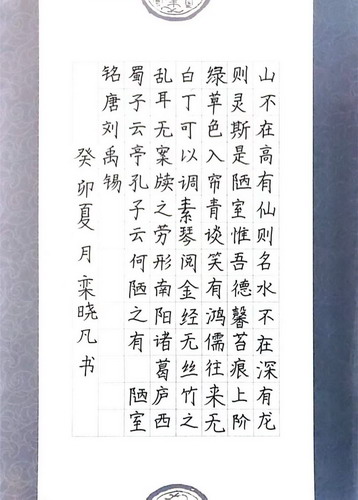 山不在高有仙则名水不在深有龙
则灵斯是陋室惟吾德馨苔痕上阶
绿草色入帘青谈笑有鸿儒往来无
白丁可以调素琴阅金经无丝竹之
乱耳无案牍之劳形南阳诸葛庐西
蜀子云亭孔子云何陋之有 陋室
铭唐刘禹锡
癸卯夏月栾晓凡书